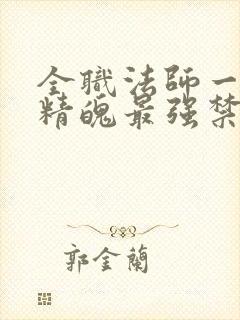 全職法師一
精魄最强禁
郭金蘭